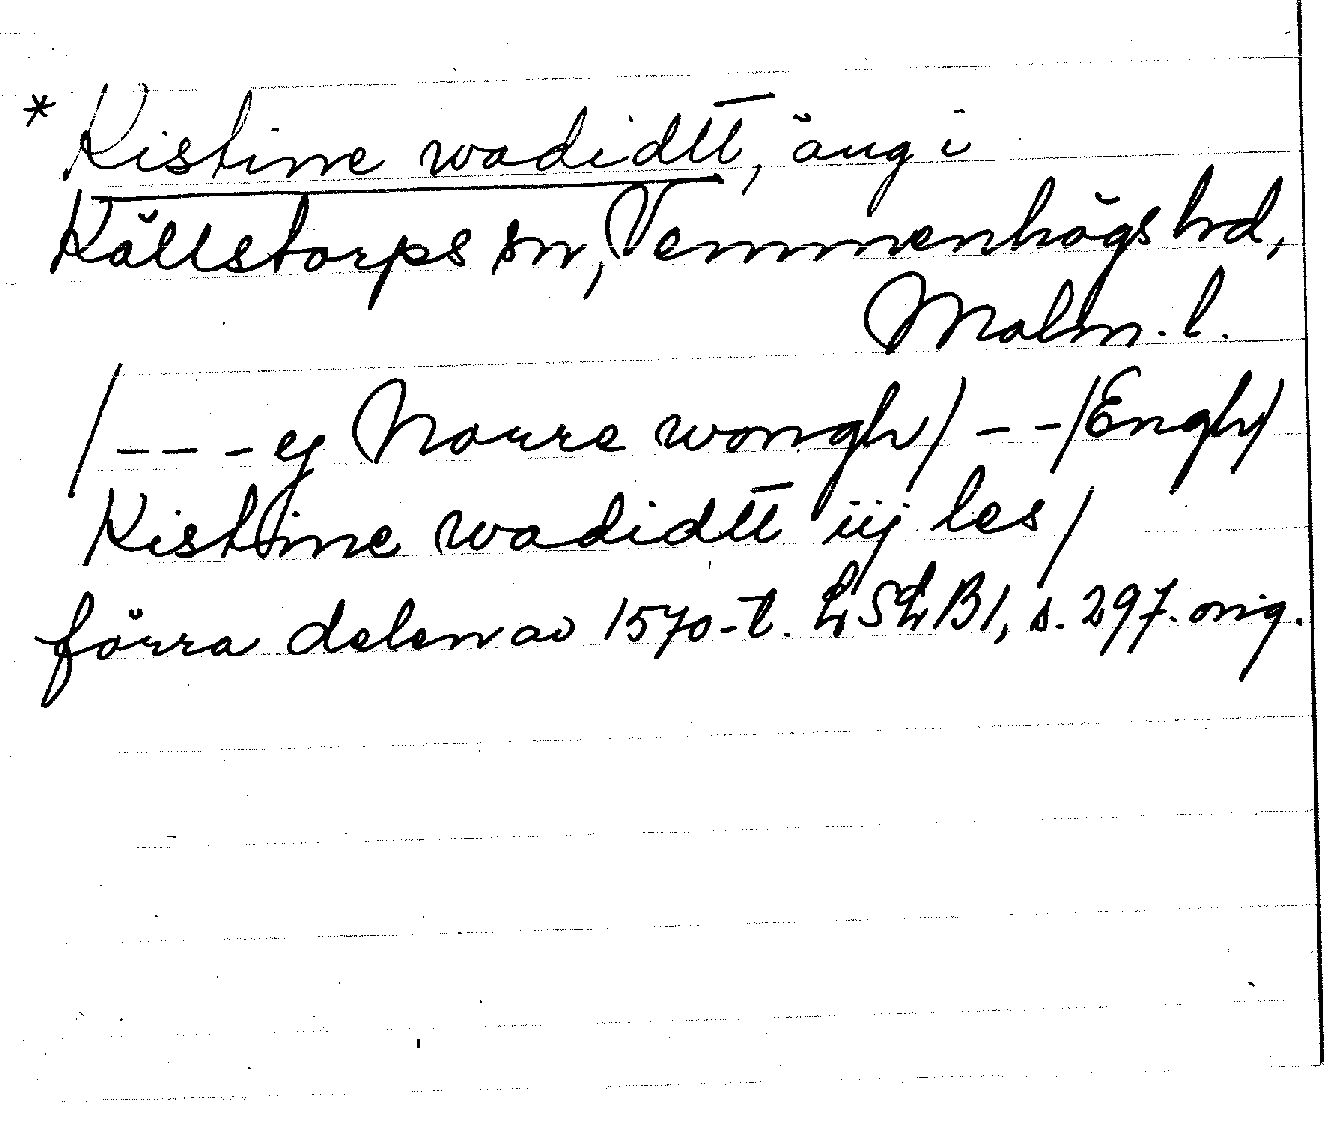 * Kistine wadidtt, äng i
Källstorps sn, Vemmenhögs hrd,
Malm. l.
/--- ej Norre wongh/ -- /Engh/
Kistine wadidtt iij les/
förra delen av 1570-t. LSLB1, s. 297. orig.